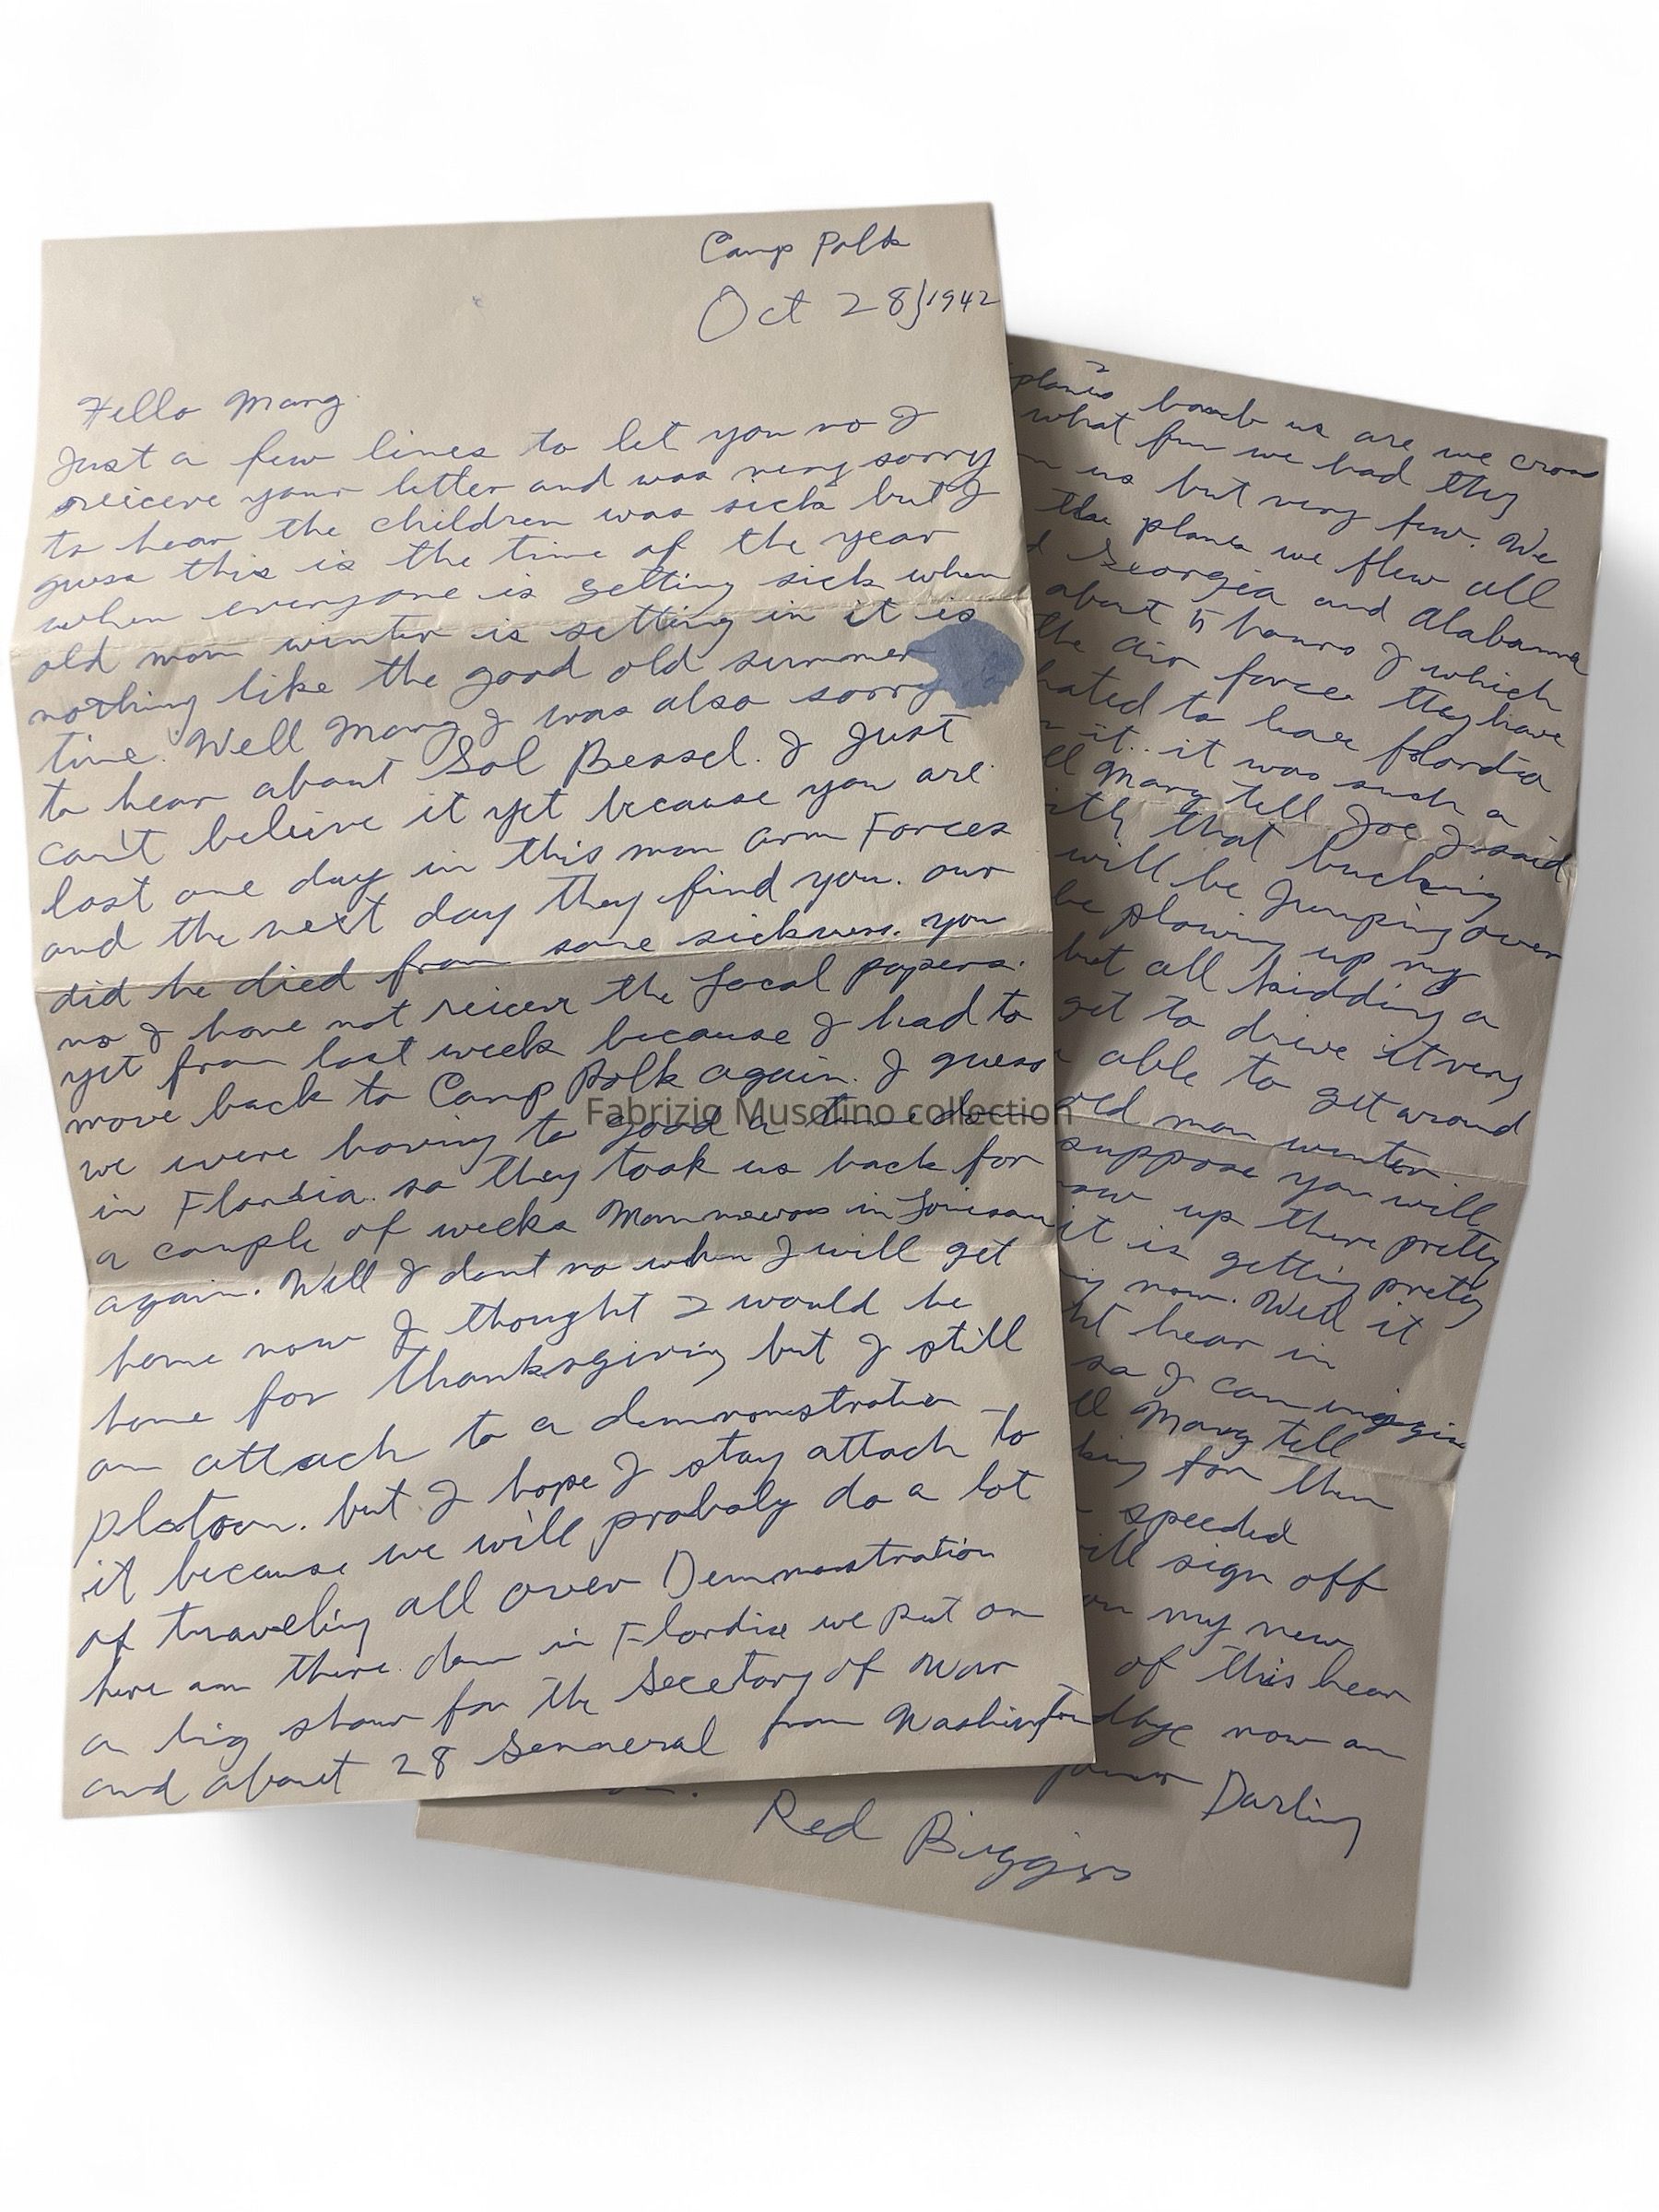 Camp Polk
Oct 28}1942
Hello Mary
Just a few lines to let you no I
reicere your letter and was very sorry
to hear the children was sick but I
guess this is the time of the year
when everyone is getting sick when
old man winter is setting in it is
nothing like the good old summer
time. Well Mary I was also sorry
to hear about Sol Bessel. I Just
can't believe it yet because you are
lost one day in this man arm Forces
and the next day they find you. our
did he died from some sickness. you
no I have not reicere the local papers.
yet from last week because I had to
move back to Camp Polk again. I guess
we were having to good a time down
in Flordia. so they took us back for
a couple of weeks in
again. Well I dont no when I will get
home now I thought I would be
home for Thanksgiving but I still
am attach to a
platoon. but I hope I stay attach to
it because we will probaly do a lot
of traveling all over
here am there. down in Flordia we put on
a big show for the Secetary of War
and about 28 from Washington
planes bomb us are we cross
what fun we had they
us but very few. We
the planes we flew all
Georgia and Alabama
about 5 hours I which
the air force they have
hated to leave Flordia
it.. it was such a
Mary tell Joe I said
that bucking
will be Jumping over
be plowing up my
but all kidding a
get to drive it very
able to get around
old man winter
suppose you will
up there pretty
it is getting pretty
now. Well it
hear in
so I can
Mary tell
for them
speeded
sign off
on my new
of this hear
now an
Darling
Red Biggss
Fabrizio Musolino collection